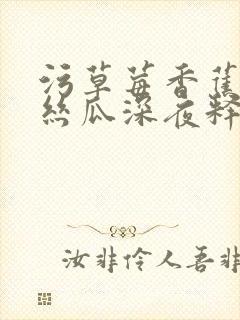 污草莓香蕉
丝瓜深夜释
汝非伶人吾非